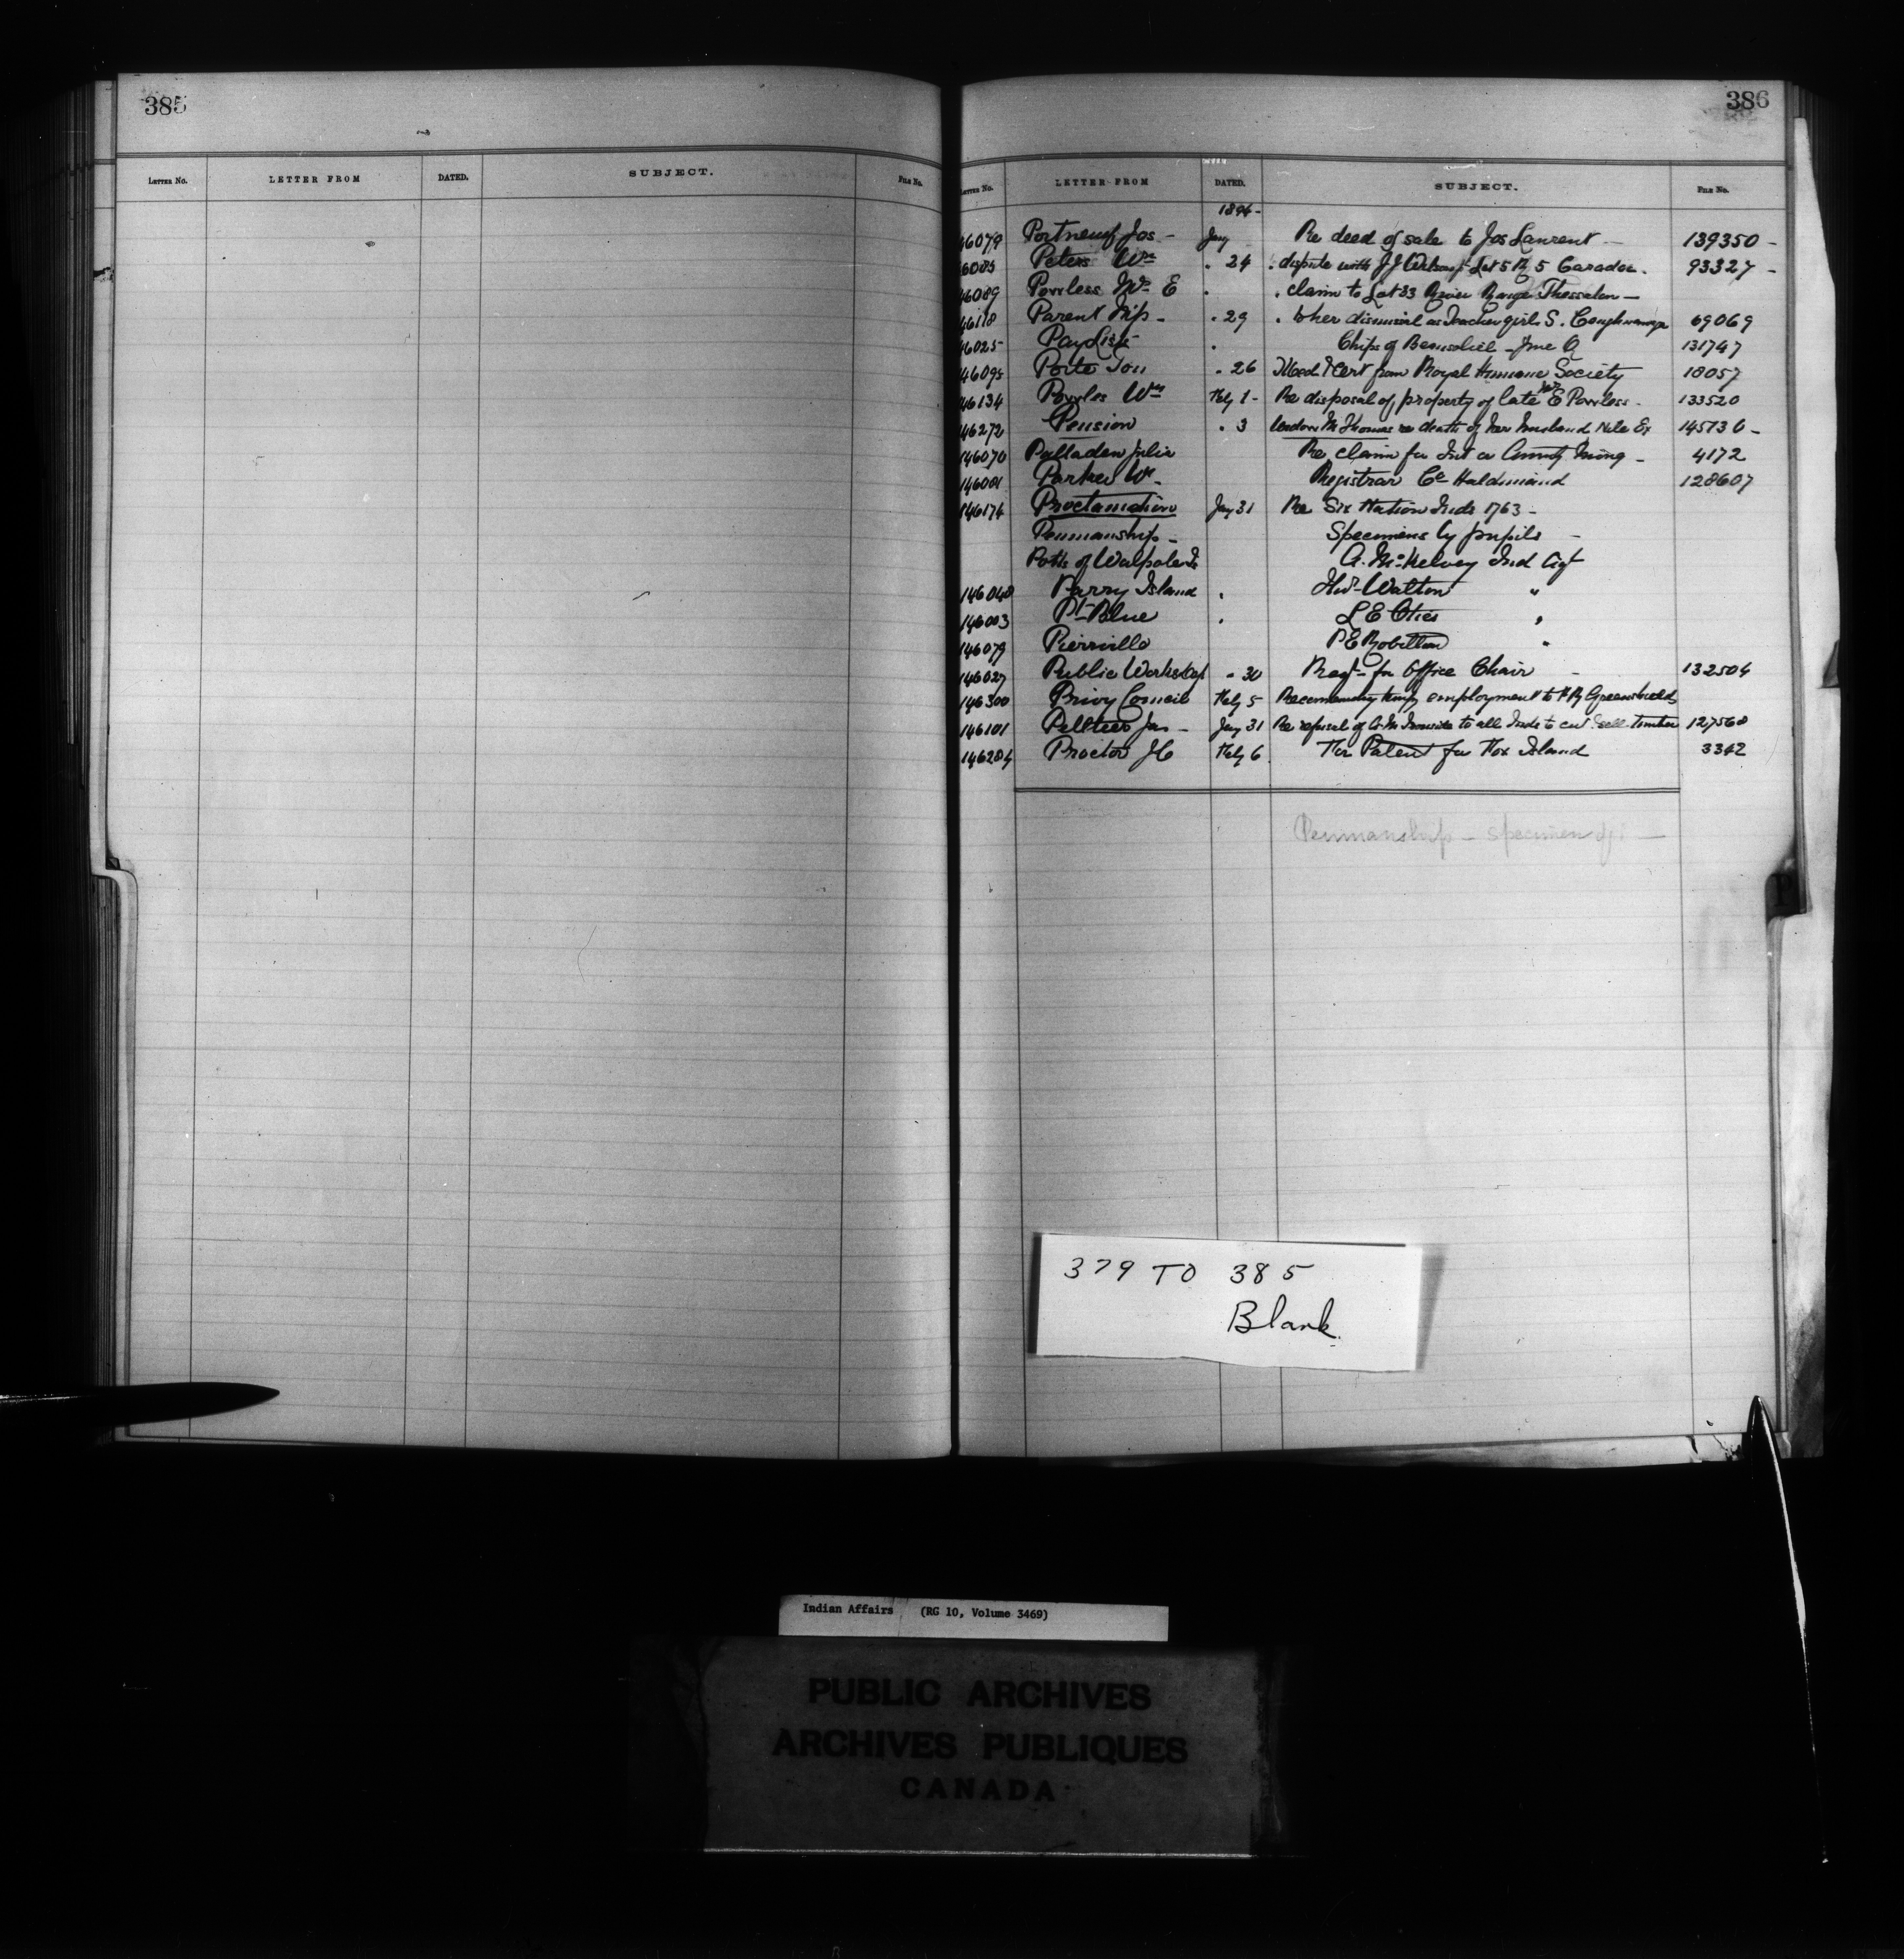 385
386
LETTER No. LETTER FROM DATED. SUBJECT. FILE No.
LETTER No. LETTER FROM DATED. SUBJECT. FILE No.
1894-
46079 Portneuf Jos - Jany Re deed of sale to Jos Laurent - 139350 -
6085 Peters Wm . 24 . dispute with J J Wilson Lot 5 R 5 Caradoc. 93327 -
46089 Powless Mrs E . . claim to Lot 33 River Range Thessalon -
46118 Parent Miss - . 29 . to her dismissal as Teacher girls S. Caughnawaga 69069
46025 Pay Lists . Chips of Beausoliel - 131747
46095 Porte Ton . 26 Medal & Cert from Royal Humane Society 18057
46134 Powles Wm Feby 1 - Re disposal of property of late Mrs E Powless - 133520
146272 Pension . 3 Widow M Thomas re death of her husband Nile Ex 145736 -
146070 Palladen Julia Re claim for Int on Annuity Money - 4172
146001 Parker W. - Registrar Co Haldimand 128607
146174 Proclamation Jany 31 Re Six Nation Inds 1763 -
Penmanship - Specimens by pupils -
Potts of Walpole Is A. McKelvey Ind Agt
146048 Parry Island . Thos Walton "
146003 Pt Blue . L E Otis "
146079 Pierville P E Robillard "
146027 Public Works Dept . 30 Reqt - for Office Chair - 132504
146300 Privy Council Feby 5 Recommending temp employment to H R Greenshields
146101 Peltier Jas - Jany 31 Re refusal of A M Ironside to all Inds to cut & sell timber 127568
146284 Proctor J C Feby 6 For Patent for Fox Island 3342
Penmanship - specimen of -
379 TO 385
Blank.
Indian Affairs (RG 10, Volume 3469)
PUBLIC ARCHIVES
ARCHIVES PUBLIQUES
CANADA